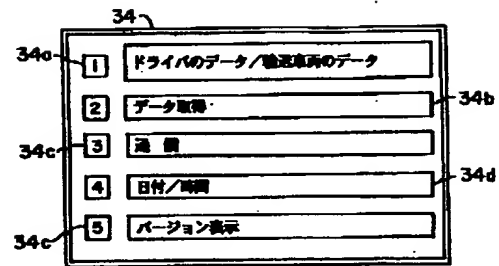 34
34a
1 ドライバのデータ/輸送車両のデータ
2 データ取得
34b
34c
3 通 信
4 日付/時間
34d
34c
5 バージョン表示